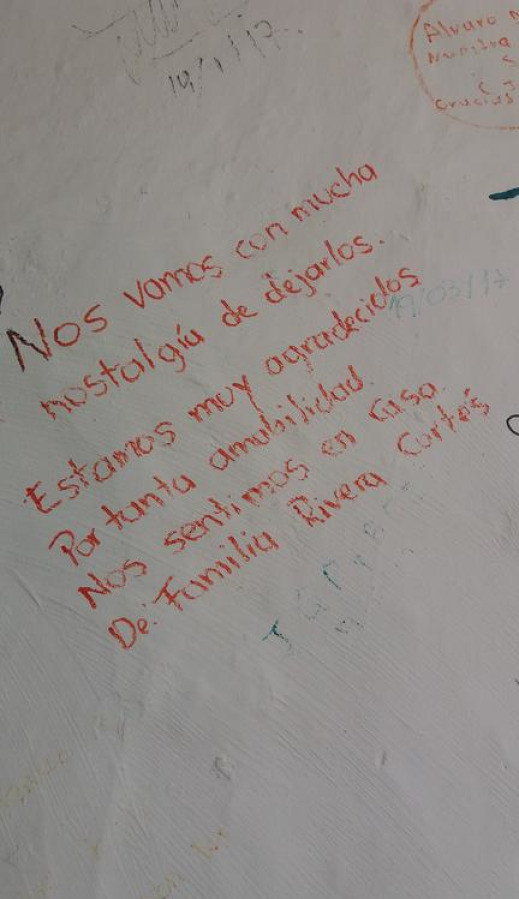 19/1/17
Alvaro
Nos vamos con mucha
nostalgia de dejarlos.
Estamos muy agradecidos
19/03/17
Por tanta amabilidad.
Nos sentimos en casa.
De: Familia Rivera Cortés